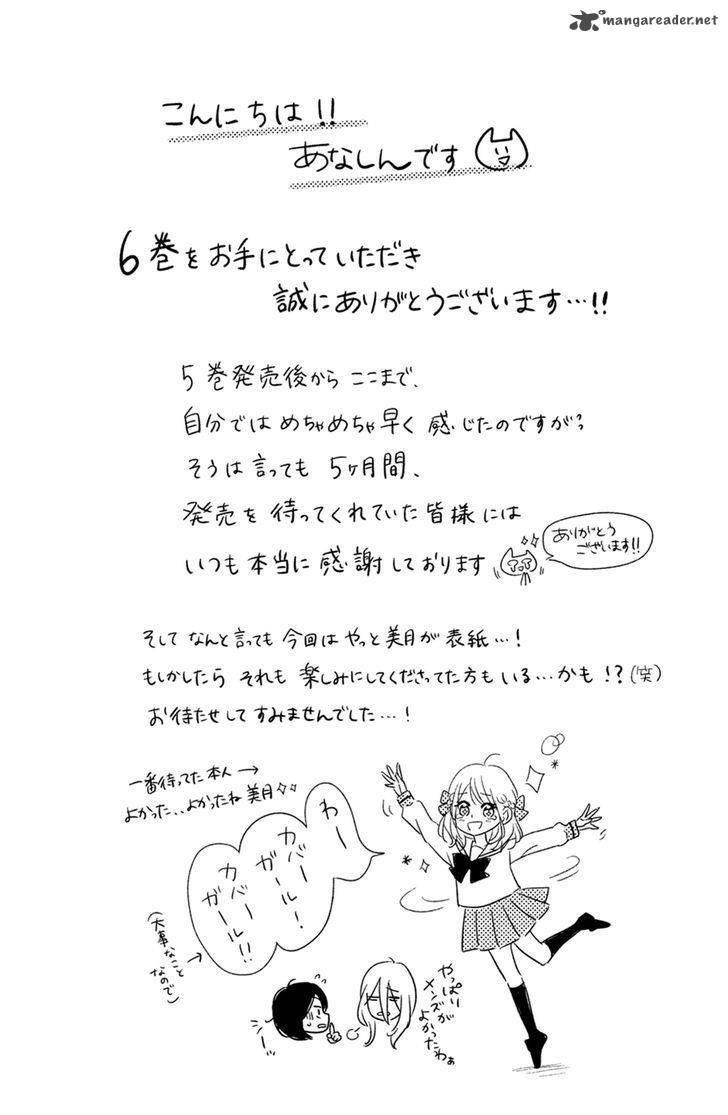 mangareader.net
こんにちは!!
あなしんです
6巻をお手にとっていただき
誠にありがとうございます…!!
5巻発売後から ここまで、
自分では めちゃめちゃ早く 感じたのですが、
そうは言っても 5ヶ月間、
発売を 待ってくれていた皆様には
いつも本当に 感謝しております
ありがとう
ございます!!
そして なんと言っても 今回は やっと美月が 表紙…!
もしかしたら それも 楽しみにしてくださってた方も いる…かも!?(笑)
お待たせして すみませんでした…!
一番待ってた本人→
よかった…よかったね美月
わー
カバー
ガール!
カバー
ガール!!
(大事なこと
なので)
→
シーッ
やっぱり
メンズが
よかったわぁ